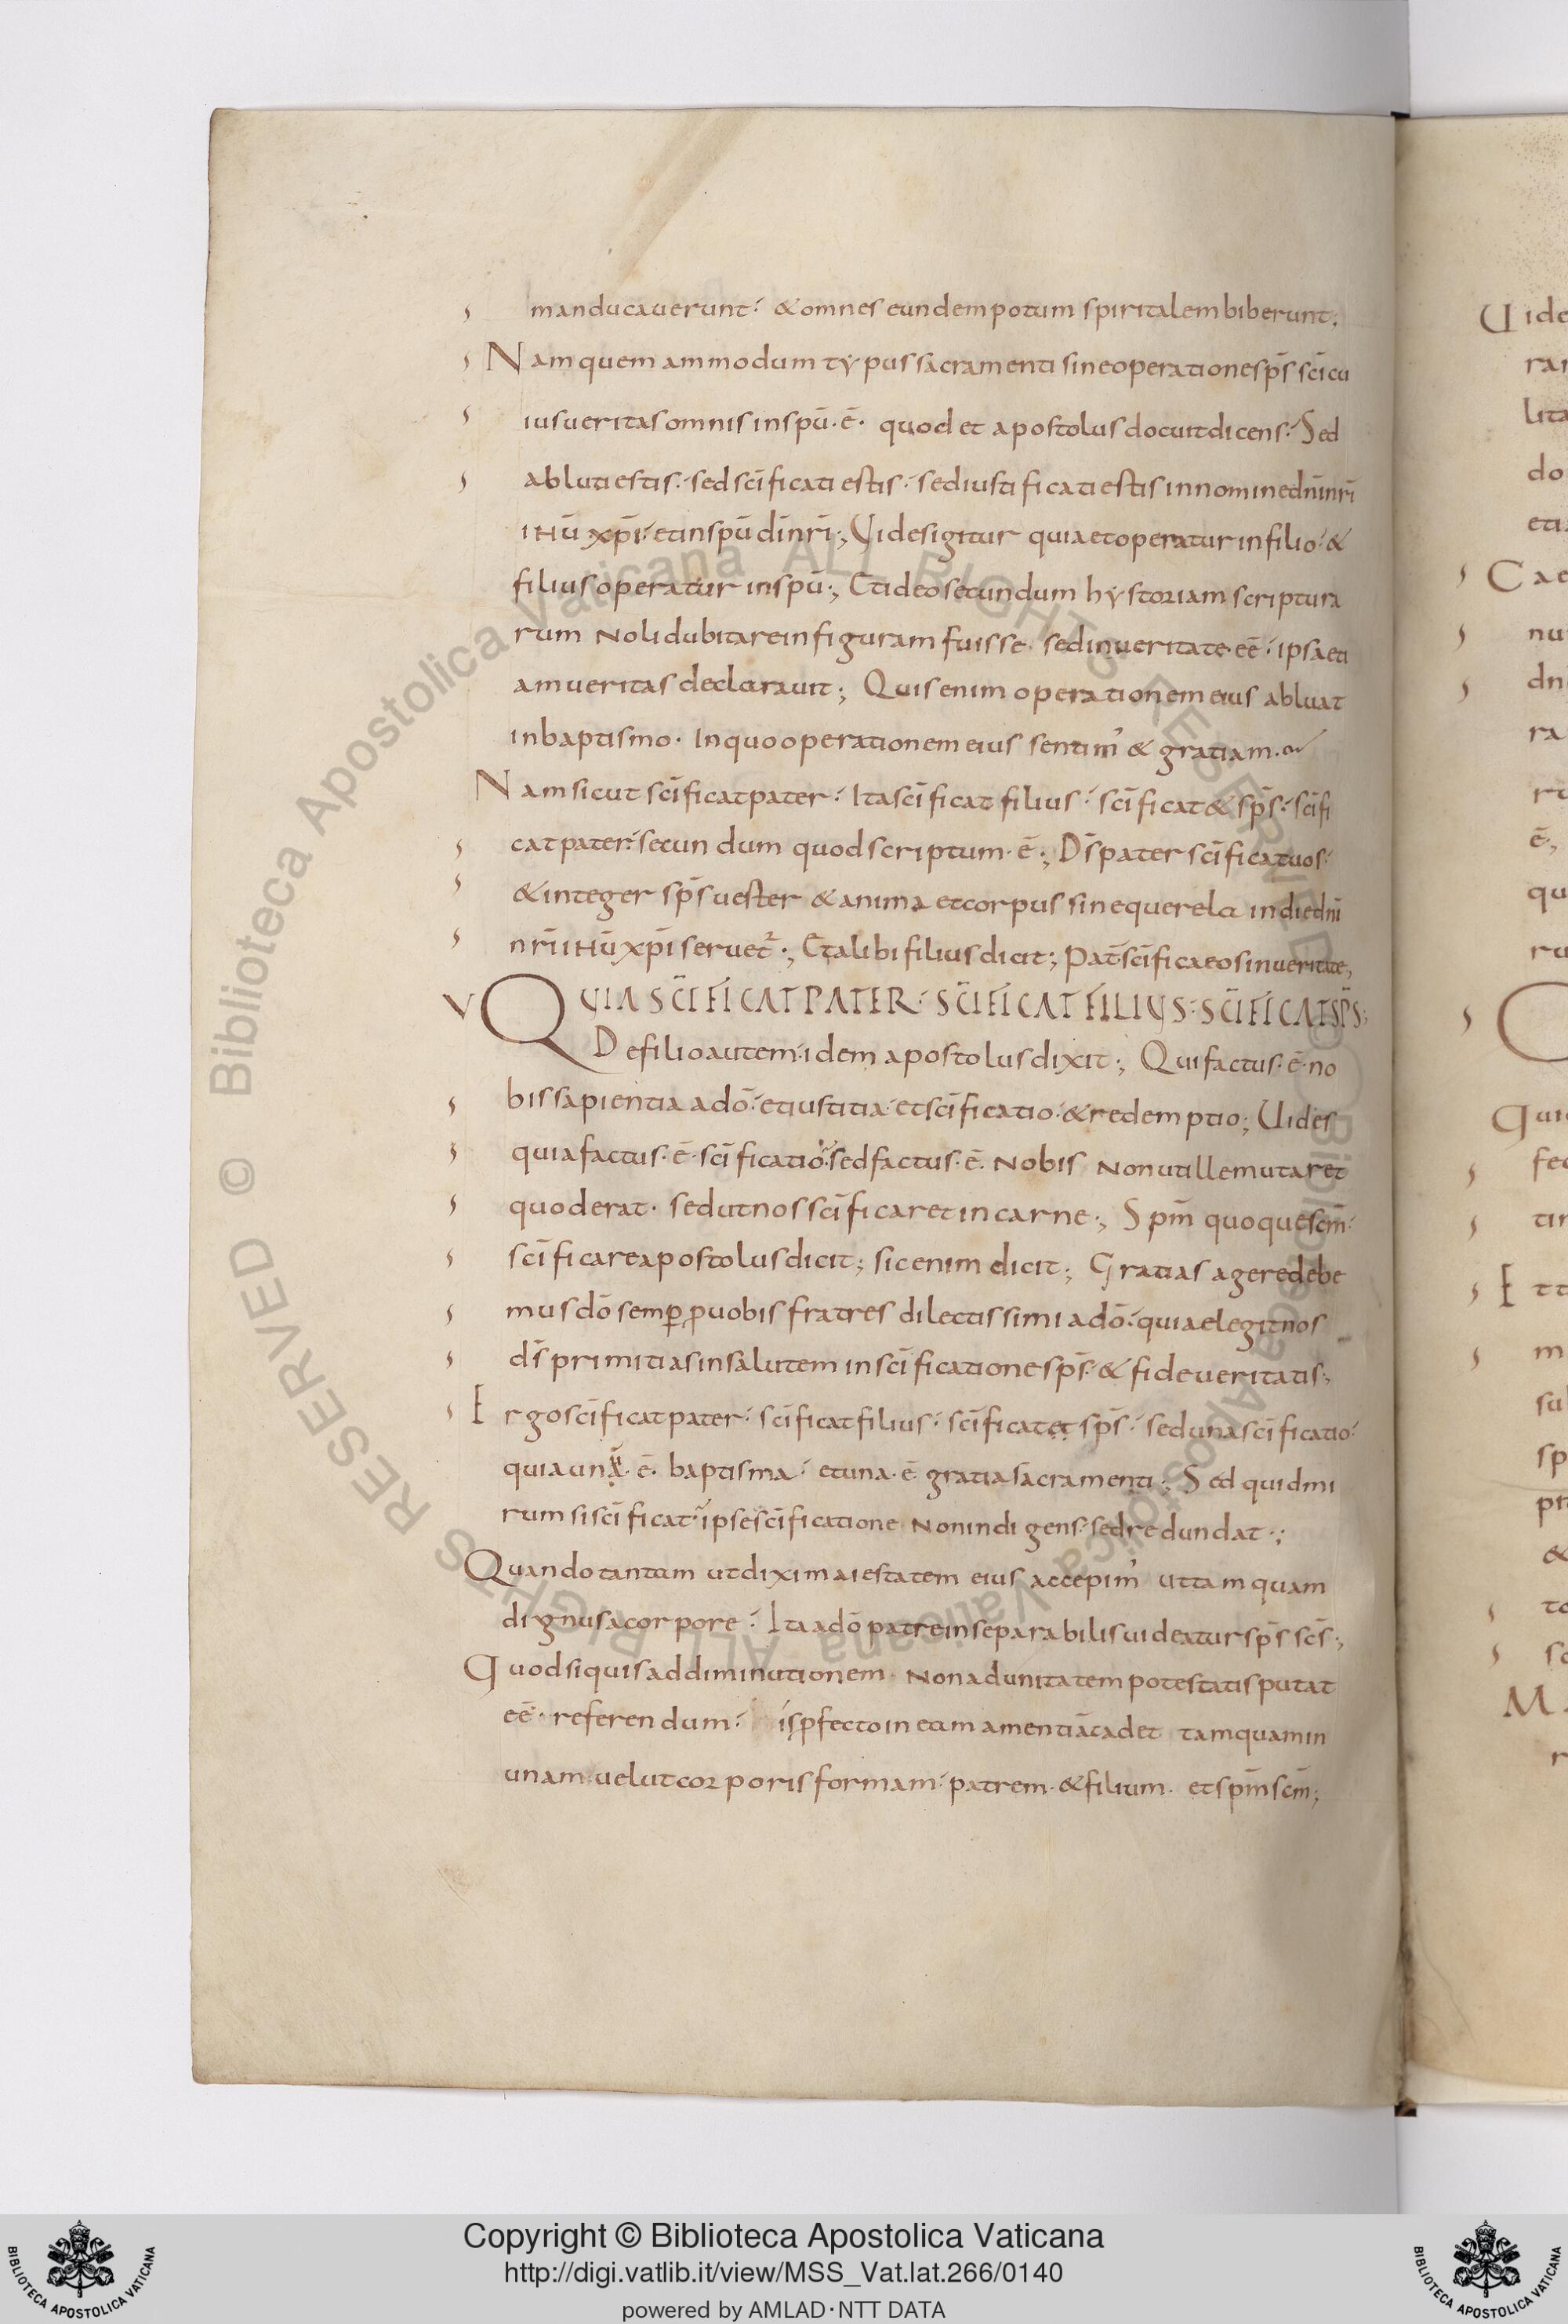 manducauerunt· &omnes eundem potum spiritalem biberunt;
Nam quem ammodum typus sacramenti sine operatione sp̄s sc̄i cu
ius ueritas omnis in spū·ē· quod et apostolus docuit dicens· Sed
abluti estis· sed sc̄ificati estis· sed iustificati estis in nomine dn̄i nr̄i
ihū xp̄i· et in spū dī nr̄i; Uides igitur quia et operatur in filio· &
filius operatur in spū; Et ideo secundum hystoriam scriptura
rum noli dubitare in figuram fuisse· sed in ueritate eē· ipsa eti
am ueritas declarauit; Quis enim operationem eius abluat
in baptismo· In quo operationem eius sentim' & gratiam·
Nam sicut sc̄ificat pater· Ita sc̄ificat filius· sc̄ificat & sp̄s· sc̄ifi
cat pater· secundum quod scriptum·ē·; Dī pater sc̄ificat uos·
& integer sp̄s uester & anima et corpus sine querela in die dn̄i
nr̄i ihū xp̄i seruet·; Et alibi filius dicit; Pat̄ sc̄ifica eos in ueritate;
V QUIA SC̄IFICAT PATER· SC̄IFICAT FILIUS· SC̄IFICAT SP̄S;
De filio autem· idem apostolus dixit; Qui factus·ē·no
bis sapientia a dō· et iustitia· et sc̄ificatio· & redemptio; Uides
quia factus·ē·sc̄ificatio· sed factus·ē· nobis non ut ille mutaret
quod erat· sed ut nos sc̄ificaret in carne; Sp̄m quoque sc̄m·
sc̄ificare apostolus dicit; sic enim dicit; Gratias agere debe
mus dō semp̱ ꝓuobis fratres dilectissimi a dō· quia elegit nos
ds̄ primitias in salutem in sc̄ificatione sp̄s· & fide ueritatis;
Ergo sc̄ificat pater· sc̄ificat filius· sc̄ificat et sp̄s· sed una sc̄ificatio·
quia una·ē· baptisma· et una·ē gratia sacramenti; Sed quid mi
rum si sc̄ificat· ipse sc̄ificatione non indigens· sed redundat·;
Quando tantam ut dixi maiestatem eius accepim' ut tamquam
dignus a corpore· Ita a dō patre inseparabilis uideatur sp̄s sc̄s;
Quod si quis ad diminutionem· non ad unitatem potestatis putat
eē· referendum· is ꝓfecto in eam amentiā cadet tamquam in
unam· uelut corporis formam· patrem· & filium· et sp̄m sc̄m;
Copyright © Biblioteca Apostolica Vaticana
http://digi.vatlib.it/view/MSS_Vat.lat.266/0140
powered by AMLAD·NTT DATA